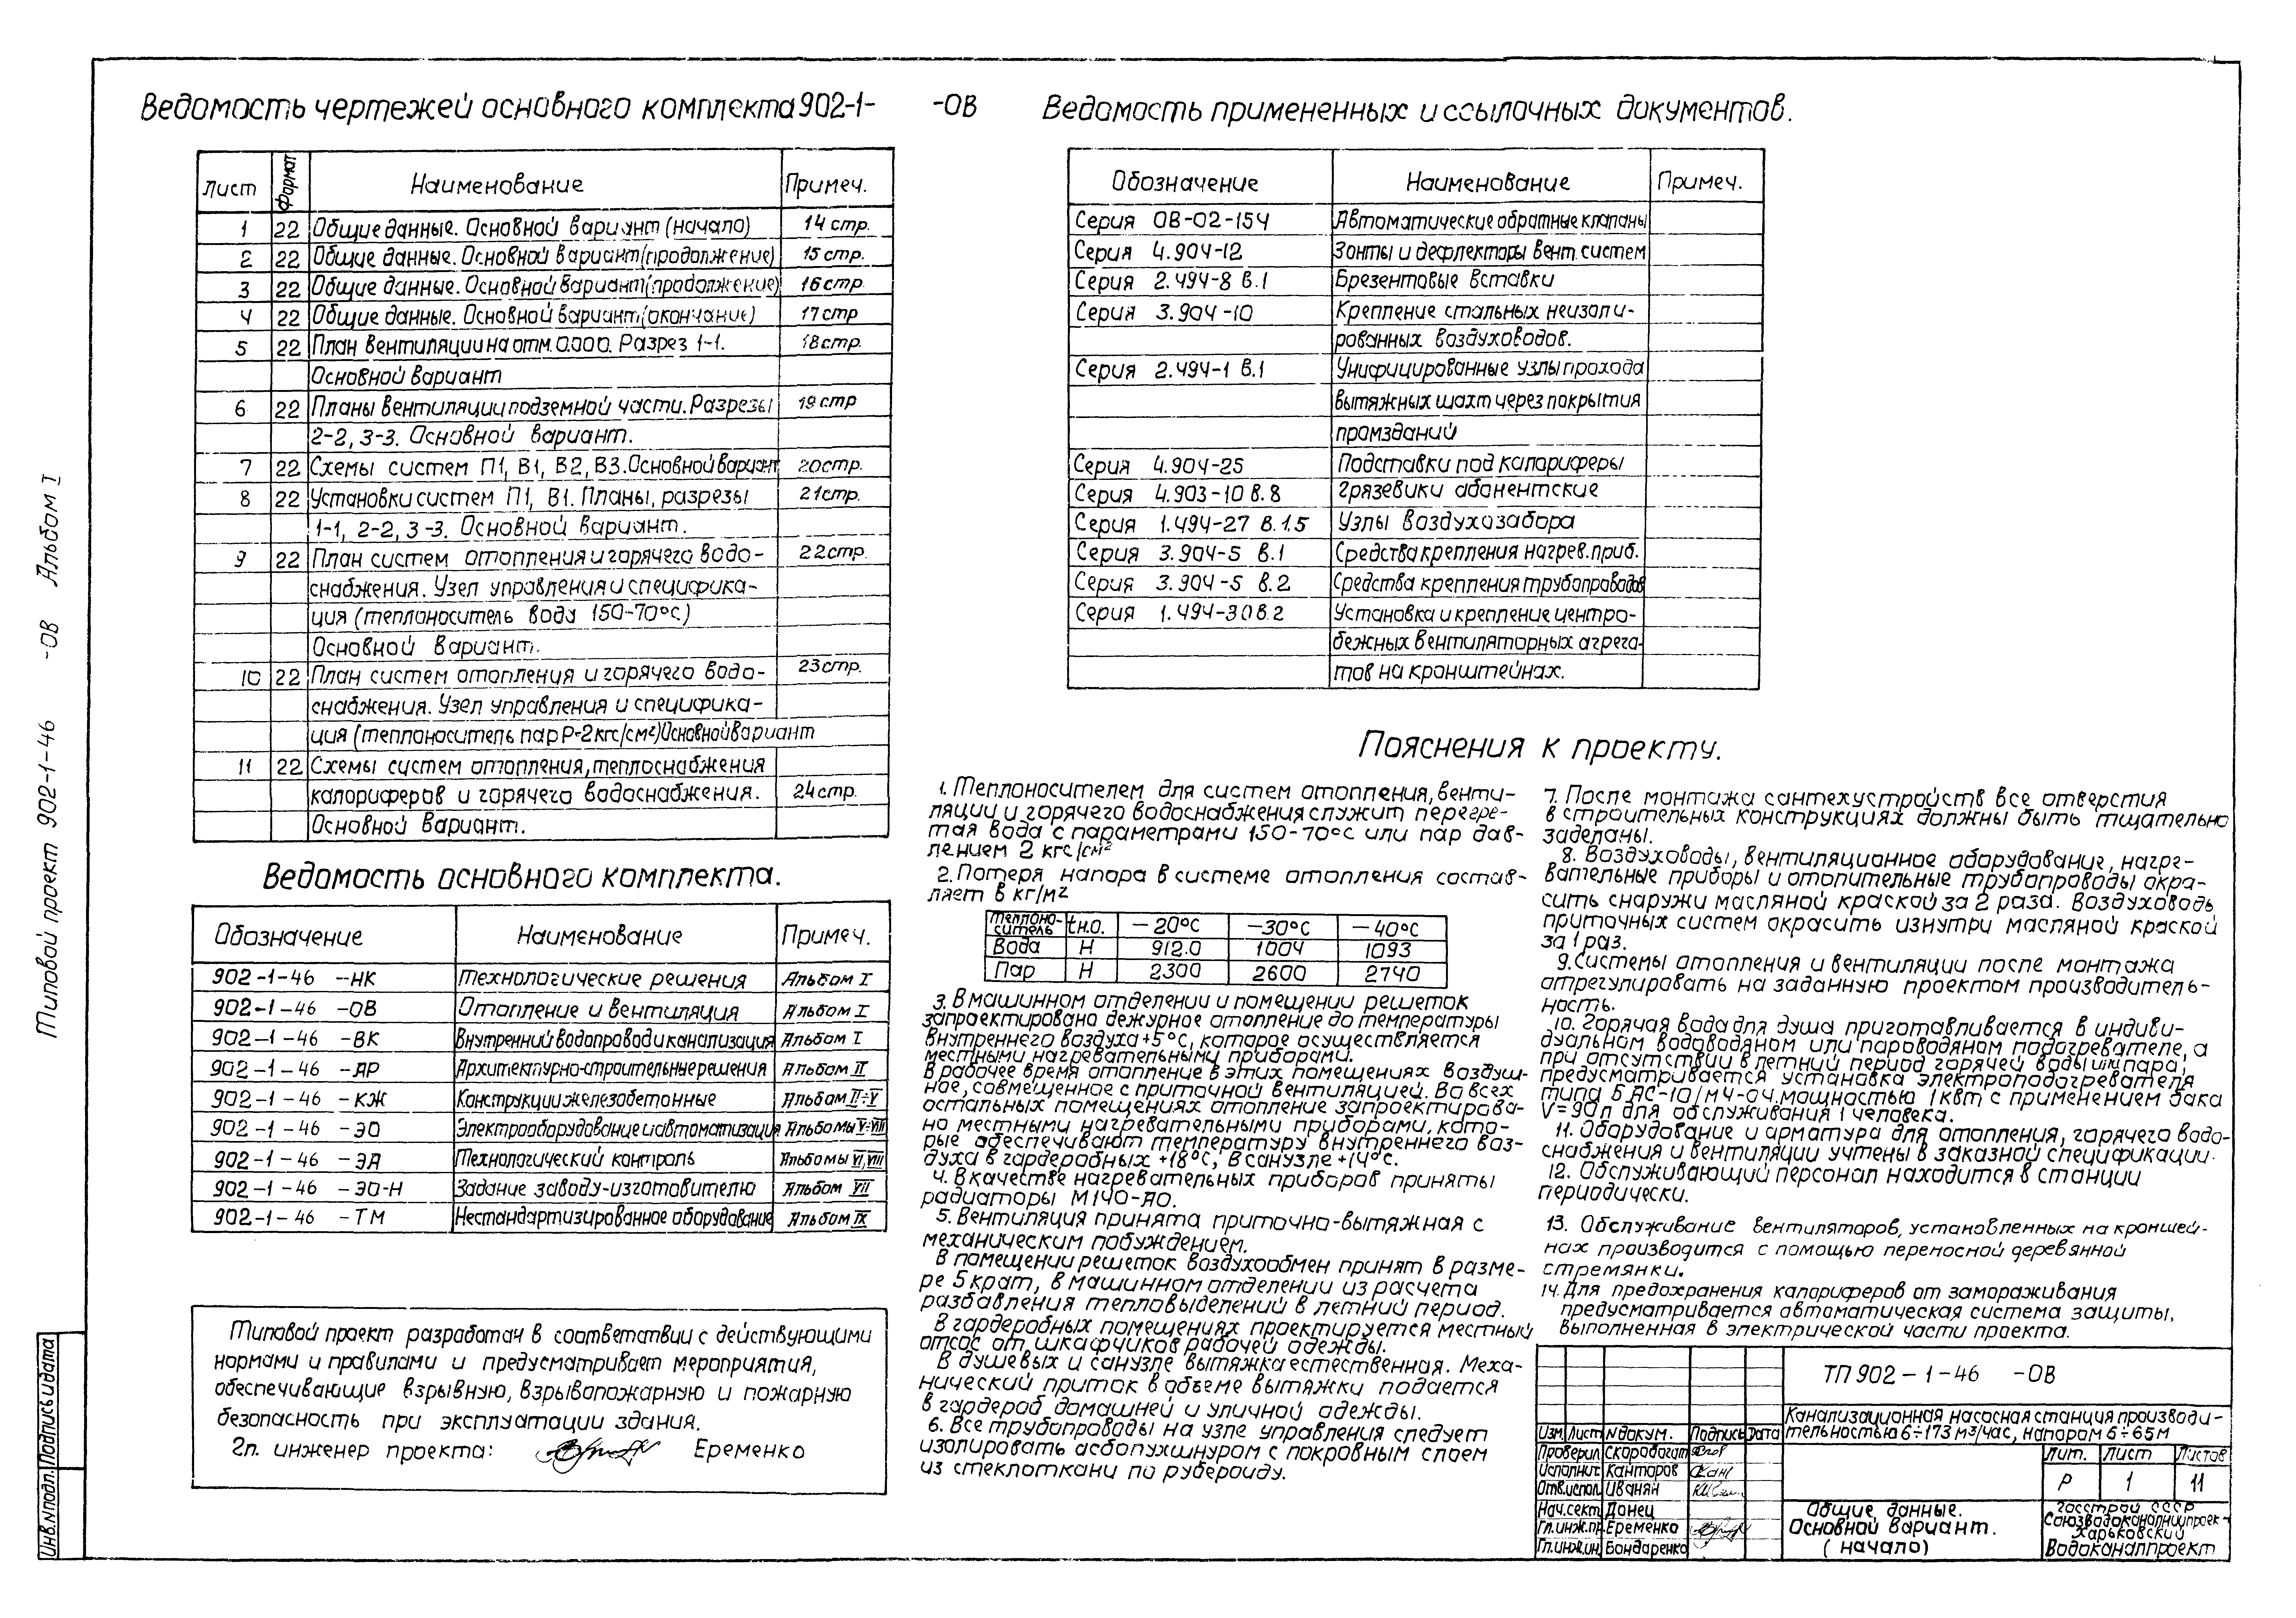 Ведомость чертежей основного комплекта 902-1- -ОВ
Лист Формат Наименование Примеч.
1 22 Общие данные. Основной вариант (начало) 14 стр.
2 22 Общие данные. Основной вариант (продолжение) 15 стр.
3 22 Общие данные. Основной вариант (продолжение) 16 стр.
4 22 Общие данные. Основной вариант (окончание) 17 стр
5 22 План вентиляции на отм. 0.000. Разрез 1-1. 18 стр.
Основной вариант
6 22 Планы вентиляции подземной части. Разрезы 19 стр
2-2, 3-3. Основной вариант.
7 22 Схемы систем П1, В1, В2, В3. Основной вариант 20 стр.
8 22 Установки систем П1, В1. Планы, разрезы 21 стр.
1-1, 2-2, 3-3. Основной вариант.
9 22 План систем отопления и горячего водо- 22 стр.
снабжения. Узел управления и специфика-
ция (теплоноситель вода 150-70°С)
Основной вариант.
10 22 План систем отопления и горячего водо- 23 стр.
снабжения. Узел управления и специфика-
ция (теплоноситель пар Р-2 кгс/см²) Основной вариант
11 22 Схемы систем отопления, теплоснабжения
калориферов и горячего водоснабжения. 24 стр.
Основной вариант.
Ведомость основного комплекта.
Обозначение Наименование Примеч.
902-1-46 -НК Технологические решения Альбом I
902-1-46 -ОВ Отопление и вентиляция Альбом I
902-1-46 -ВК Внутренний водопровод и канализация Альбом I
902-1-46 -АР Архитектурно-строительные решения Альбом II
902-1-46 -КЖ Конструкции железобетонные Альбом II÷V
902-1-46 -ЭО Электрооборудование и автоматизация Альбомы V÷VIII
902-1-46 -ЭА Технологический контроль Альбомы VI, VIII
902-1-46 -ЭО-Н Задание заводу-изготовителю Альбом VII
902-1-46 -ТМ Нестандартизированное оборудование Альбом IX
Типовой проект разработан в соответствии с действующими
нормами и правилами и предусматривает мероприятия,
обеспечивающие взрывную, взрывопожарную и пожарную
безопасность при эксплуатации здания.
Гл. инженер проекта: Еременко
Ведомость примененных и ссылочных документов.
Обозначение Наименование Примеч.
Серия ОВ-02-154 Автоматические обратные клапаны
Серия 4.904-12 Зонты и дефлекторы вент. систем
Серия 2.494-8 в.1 Брезентовые вставки
Серия 3.904-10 Крепление стальных неизоли-
рованных воздуховодов.
Серия 2.494-1 в.1 Унифицированные узлы прохода
вытяжных шахт через покрытия
промзданий
Серия 4.904-25 Подставки под калориферы
Серия 4.903-10 в.8 Грязевики абонентские
Серия 1.494-27 в.1.5 Узлы воздухозабора
Серия 3.904-5 в.1 Средства крепления нагрев. приб.
Серия 3.904-5 в.2 Средства крепления трубопроводов
Серия 1.494-30 в.2 Установка и крепление центро-
бежных вентиляторных агрега-
тов на кронштейнах.
Пояснения к проекту.
1. Теплоносителем для систем отопления, венти-
ляции и горячего водоснабжения служит перегре-
тая вода с параметрами 150-70°С или пар дав-
лением 2 кгс/см²
2. Потеря напора в системе отопления состав-
ляет в кг/м²
Теплоно-
ситель tн.о. -20°С -30°С -40°С
Вода Н 912.0 1004 1093
Пар Н 2300 2600 2740
3. В машинном отделении и помещении решеток
запроектировано дежурное отопление до температуры
внутреннего воздуха +5°С, которое осуществляется
местными нагревательными приборами.
В рабочее время отопление в этих помещениях воздуш-
ное, совмещенное с приточной вентиляцией. Во всех
остальных помещениях отопление запроектирова-
но местными нагревательными приборами, кото-
рые обеспечивают температуру внутреннего воз-
духа в гардеробных +18°С, в санузле +14°С.
4. В качестве нагревательных приборов приняты
радиаторы М140-АО.
5. Вентиляция принята приточно-вытяжная с
механическим побуждением.
В помещении решеток воздухообмен принят в разме-
ре 5 крат, в машинном отделении из расчета
разбавления тепловыделений в летний период.
В гардеробных помещениях проектируется местный
отсос от шкафчиков рабочей одежды.
В душевых и санузле вытяжка естественная. Меха-
нический приток в объеме вытяжки подается
в гардероб домашней и уличной одежды.
6. Все трубопроводы на узле управления следует
изолировать асбопухшнуром с покровным слоем
из стеклоткани по рубероиду.
7. После монтажа сантехустройств все отверстия
в строительных конструкциях должны быть тщательно
заделаны.
8. Воздуховоды, вентиляционное оборудование, нагре-
вательные приборы и отопительные трубопроводы окра-
сить снаружи масляной краской за 2 раза. Воздуховодь
приточных систем окрасить изнутри масляной краской
за 1 раз.
9. Системы отопления и вентиляции после монтажа
отрегулировать на заданную проектом производитель-
ность.
10. Горячая вода для душа приготавливается в индиви-
дуальном водоводяном или пароводяном подогревателе, а
при отсутствии в летний период горячей воды или пара,
предусматривается установка электроподогревателя
типа БАС-10/М4-04. мощностью 1 квт с применением бака
V=90л для обслуживания 1 человека.
11. Оборудование и арматура для отопления, горячего водо-
снабжения и вентиляции учтены в заказной спецификации.
12. Обслуживающий персонал находится в станции
периодически.
13. Обслуживание вентиляторов, установленных на кроншей-
нах производится с помощью переносной деревянной
стремянки.
14. Для предохранения калориферов от замораживания
предусматривается автоматическая система защиты,
выполненная в электрической части проекта.
ТП 902-1-46 -ОВ
Канализационная насосная станция производи-
тельностью 6÷173 м³/час, напором 6÷65м
Изм Лист № докум. Подпись Дата
Проверил Скоробогат
Исполнит. Канторов
Отв. испол. Иванян
Нач. сект. Донец
Гл. инж. пр. Еременко
Гл. инж. ин. Бондаренко
Лит. Лист Листов
Р 1 11
Общие данные.
Основной вариант.
(начало)
Госстрой СССР
Союзводоканалпроект
Харьковский
Водоканалпроект
Типовой проект 902-1-46 -ОВ Альбом I
Инв. № подл. Подпись и дата